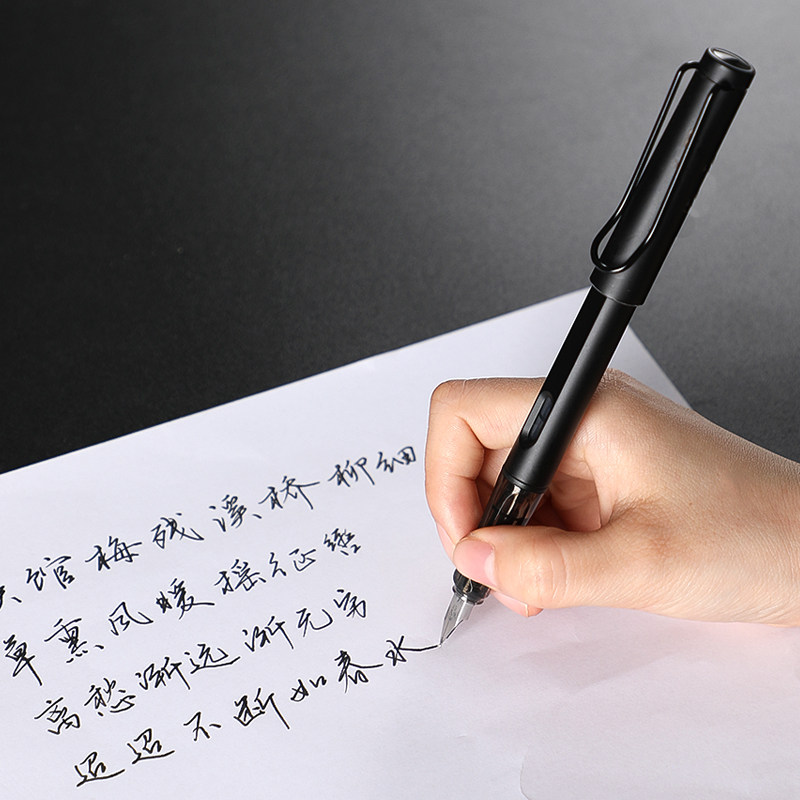 馆梅残溪桥柳细
草熏风暖摇征辔
离愁渐远渐无穷
迢迢不断如春水